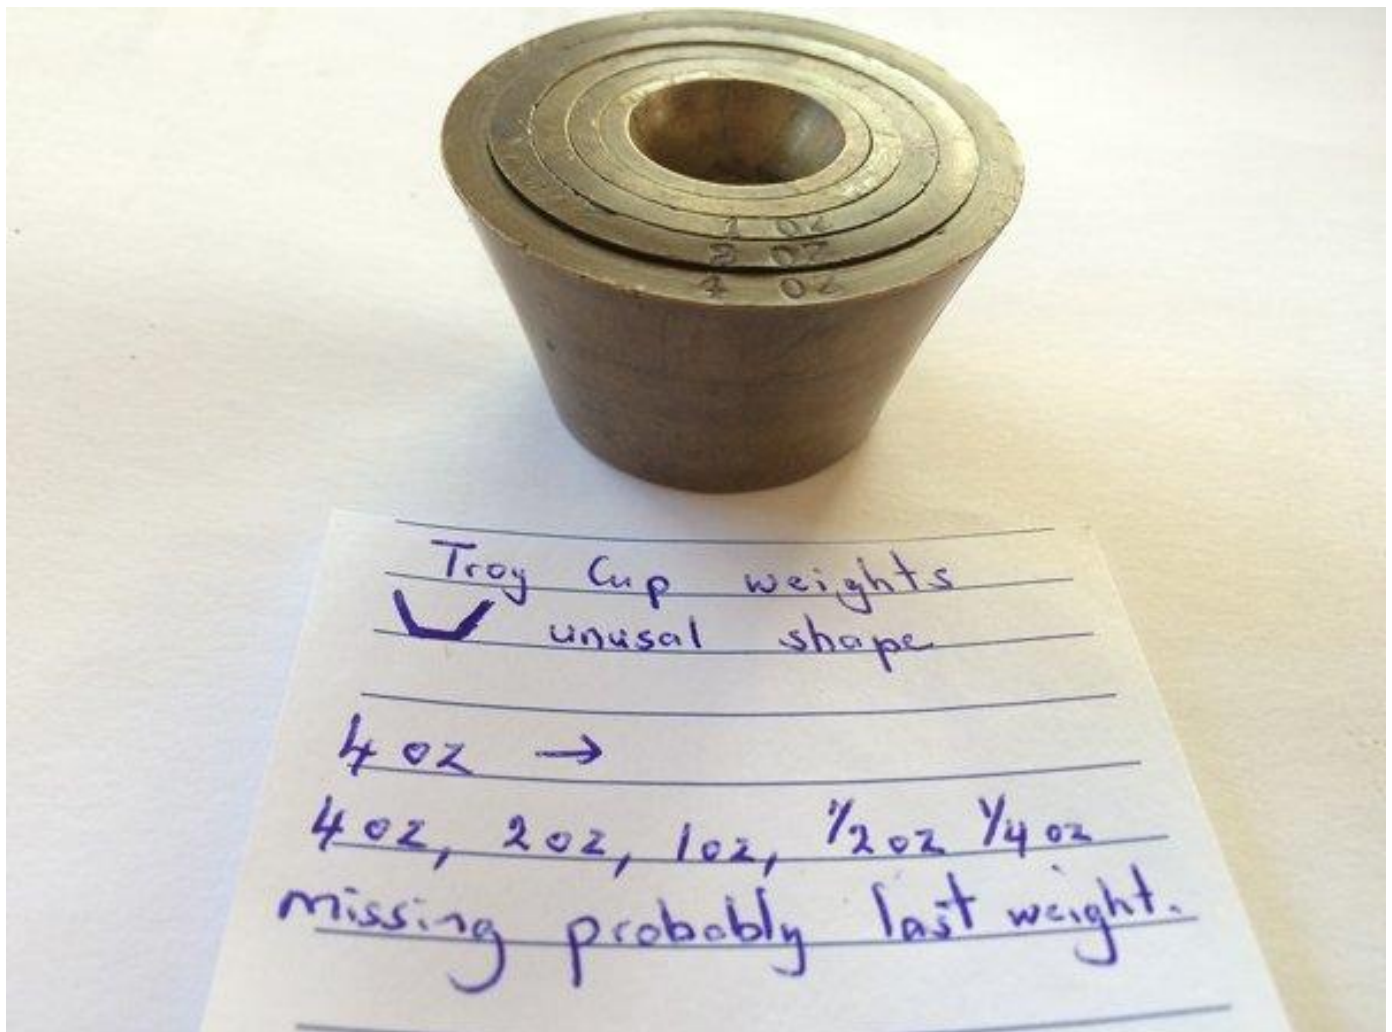 1 OZ
2 OZ
4 OZ
Troy Cup weights
unusal shape
4 oz →
4 oz, 2 oz, 1 oz, 1/2 oz 1/4 oz
missing probably last weight.